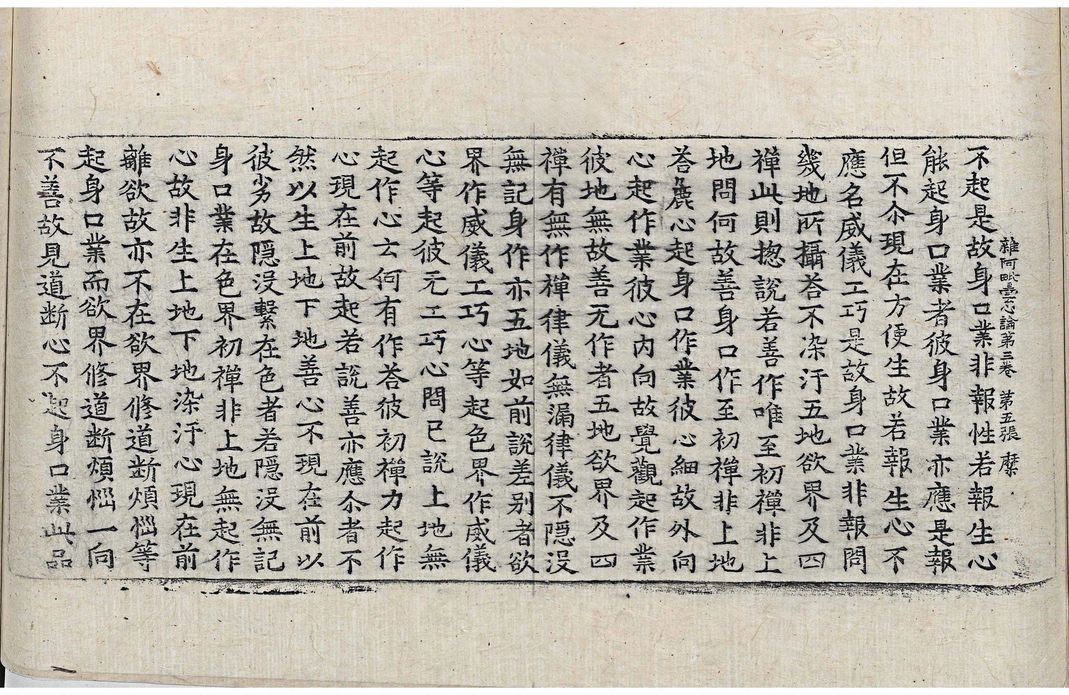 雜阿毗曇心論第三卷 第五張 縻
不起是故身口業非報性若報生心
能起身口業者彼身口業亦應是報
但不尒現在方便生故若報生心不
應名威儀工巧是故身口業非報問
幾地所攝荅不染汙五地欲界及四
禪此則揔說若善作唯至初禪非上
地問何故善身口作至初禪非上地
荅麁心起身口作業彼心細故外向
心起作業彼心內向故覺觀起作業
彼地無故善无作者五地欲界及四
禪有無作禪律儀無漏律儀不隱没
無記身作亦五地如前說差别者欲
界作威儀工巧心等起色界作威儀
心等起彼无工巧心問已說上地無
起作心云何有作荅彼初禪力起作
心現在前故起若說善亦應尒者不
然以生上地下地善心不現在前以
彼劣故隱没繫在色者若隱没無記
身口業在色界初禪非上地無起作
心故非生上地下地染汙心現在前
離欲故亦不在欲界修道斷煩惱等
起身口業而欲界修道断煩惱一向
不善故見道断心不起身口業此品